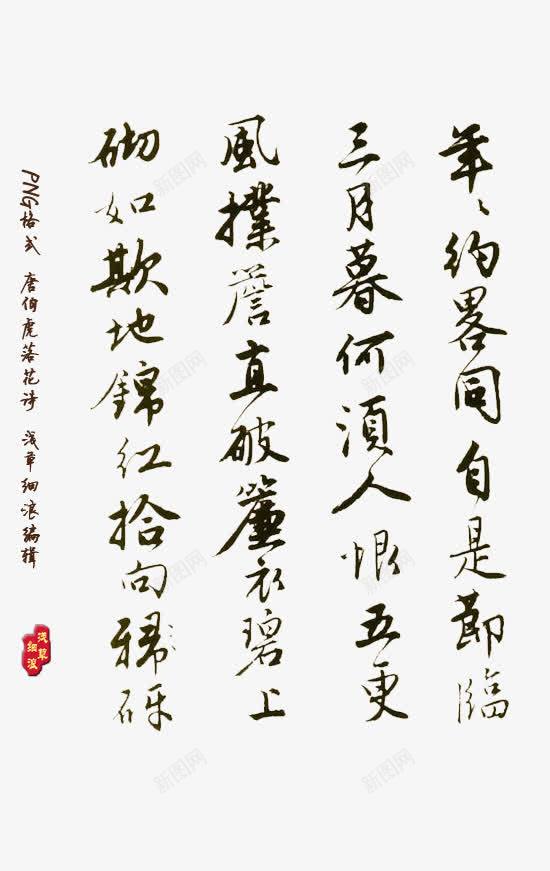 年〻約畧同自是節臨
三月暮何湏人恨五更
風撲簷直破簾衣碧上
砌如欺地錦紅拾向砑
PNG格式 唐伯虎落花诗 浅草细浪编辑
浅草
细浪
新图网